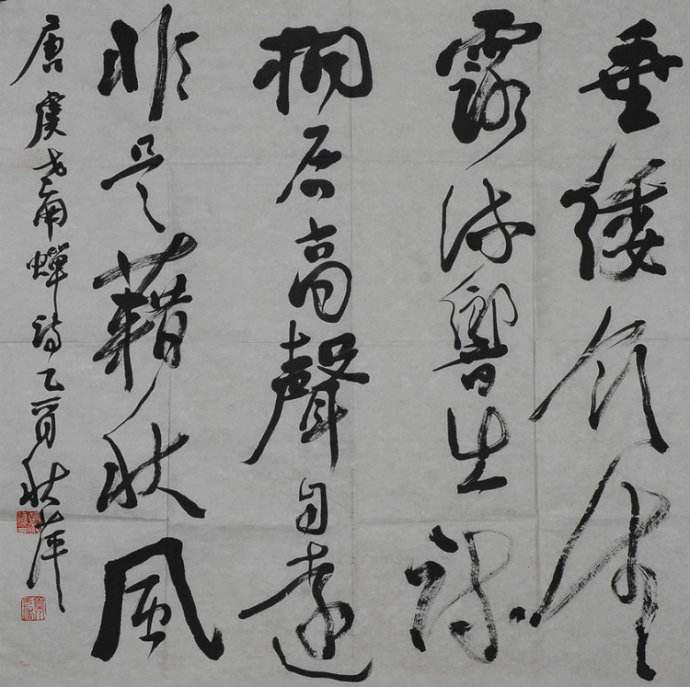 垂緌飲清
露流響出疏
桐居高聲自遠
非是藉秋風
唐虞世南蟬詩乙酉秋萍